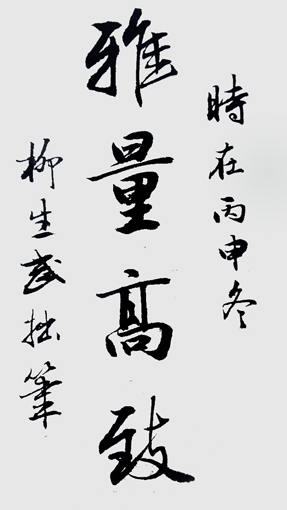 時在丙申冬
雅量高致
柳生武拙筆